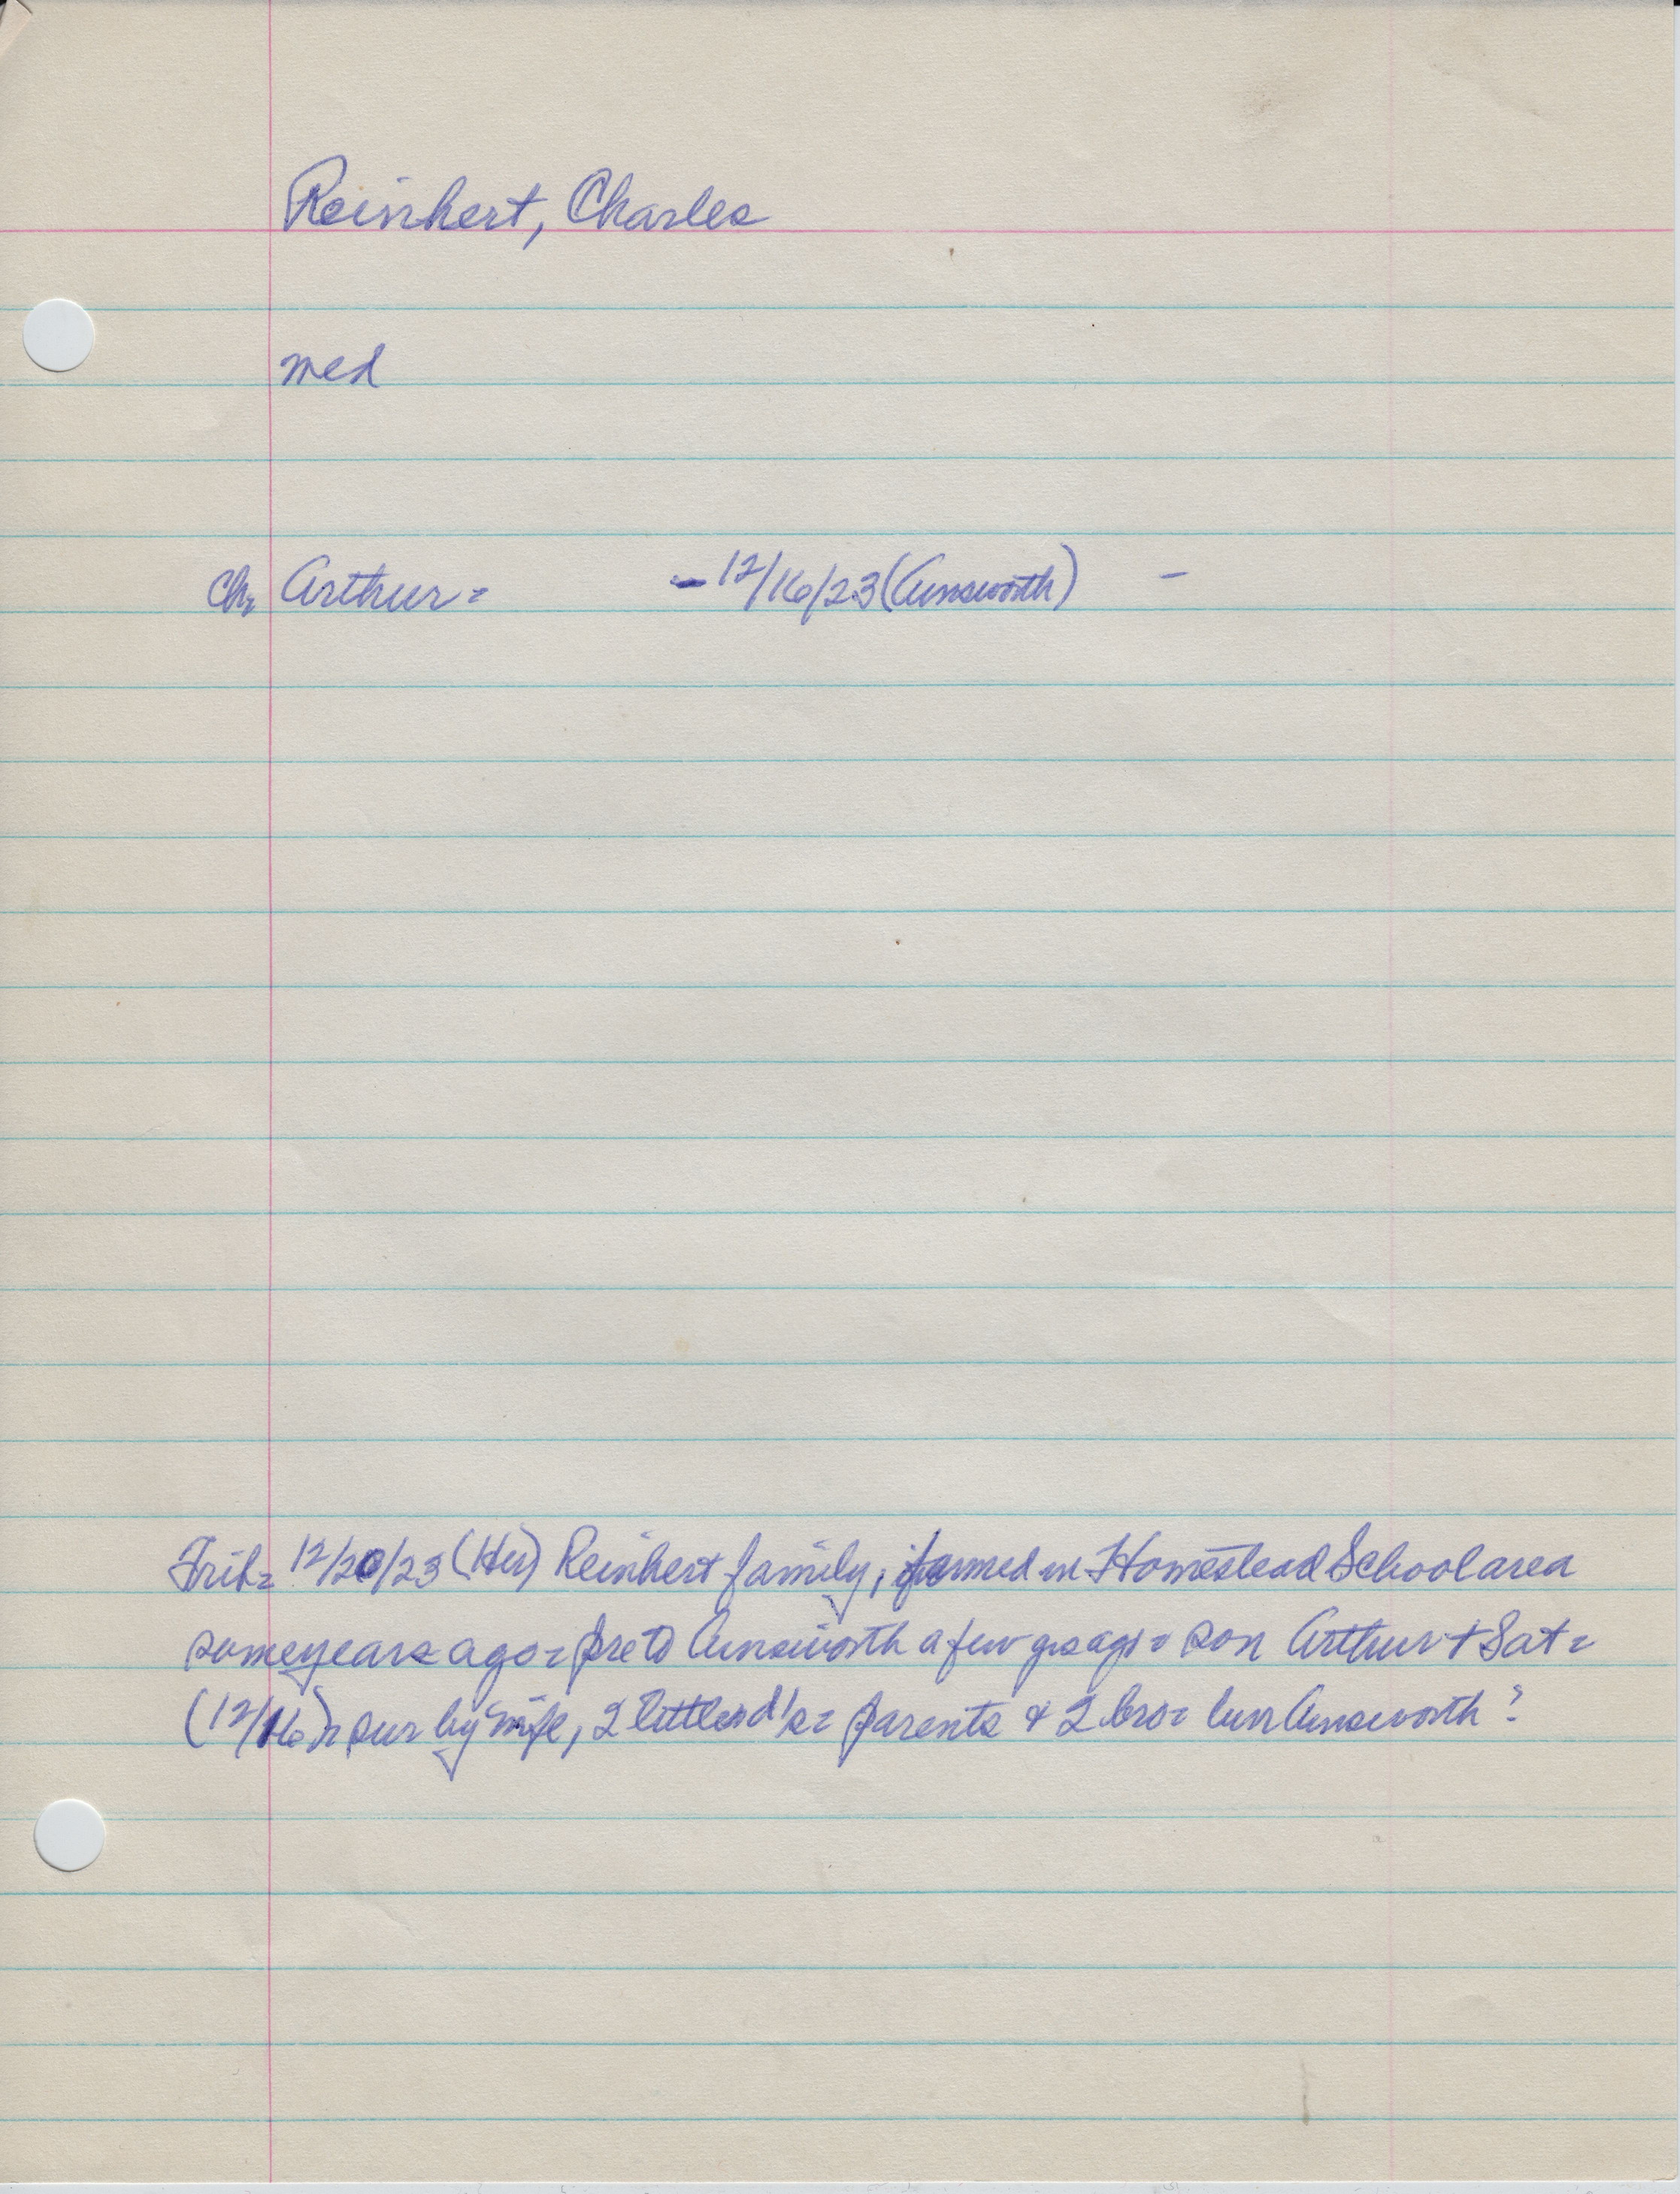 Reinhert, Charles
med
Ch= Arthur= - 12/16/23 (Ainsworth) -
Trib= 12/20/23 (Her) Reinhert family, farmed in Homestead School area
some years ago= pre to Ainsworth a few yrs ago= son Arthur + Sat=
(12/16)= sur by wife, 2 little d's= parents & 2 bro= bur Ainsworth?